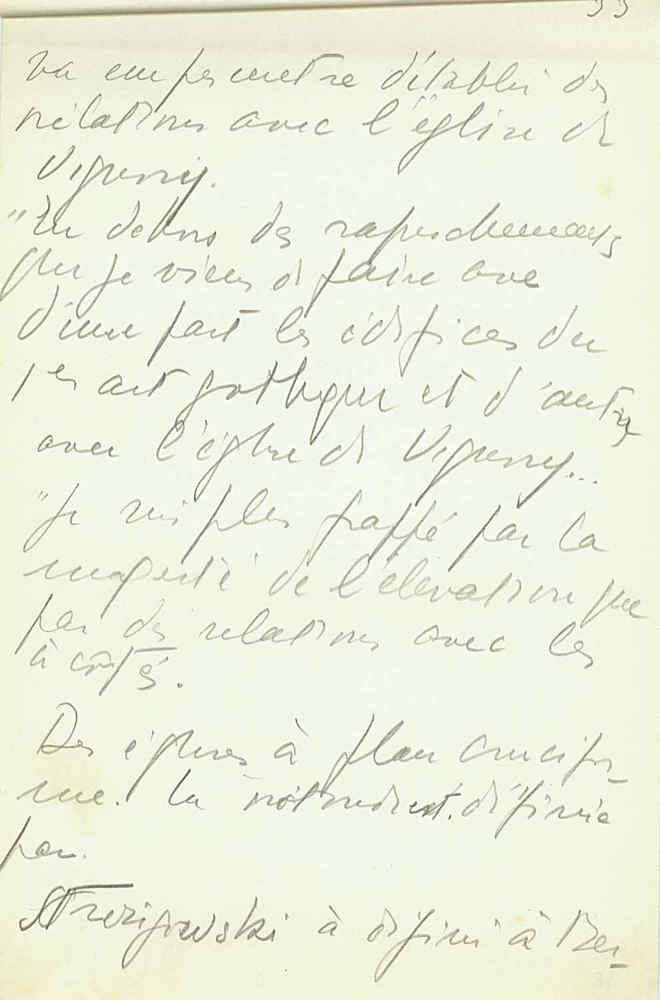 va me permettre d'établir des
rélations avec l'église de
Vignory.
"En dehors des rapprochements
que je viens de faire avec
d'une part les édifices du
1er art gothique et d'autre
avec l'église de Vignory...
"Je suis plus frappé par la
majesté de l'élévation que
par des relations avec les
à côtés.
Des églises à plan crucifor-
me. La rotonde est définie
par.
Strzygowski à défini à Ber-